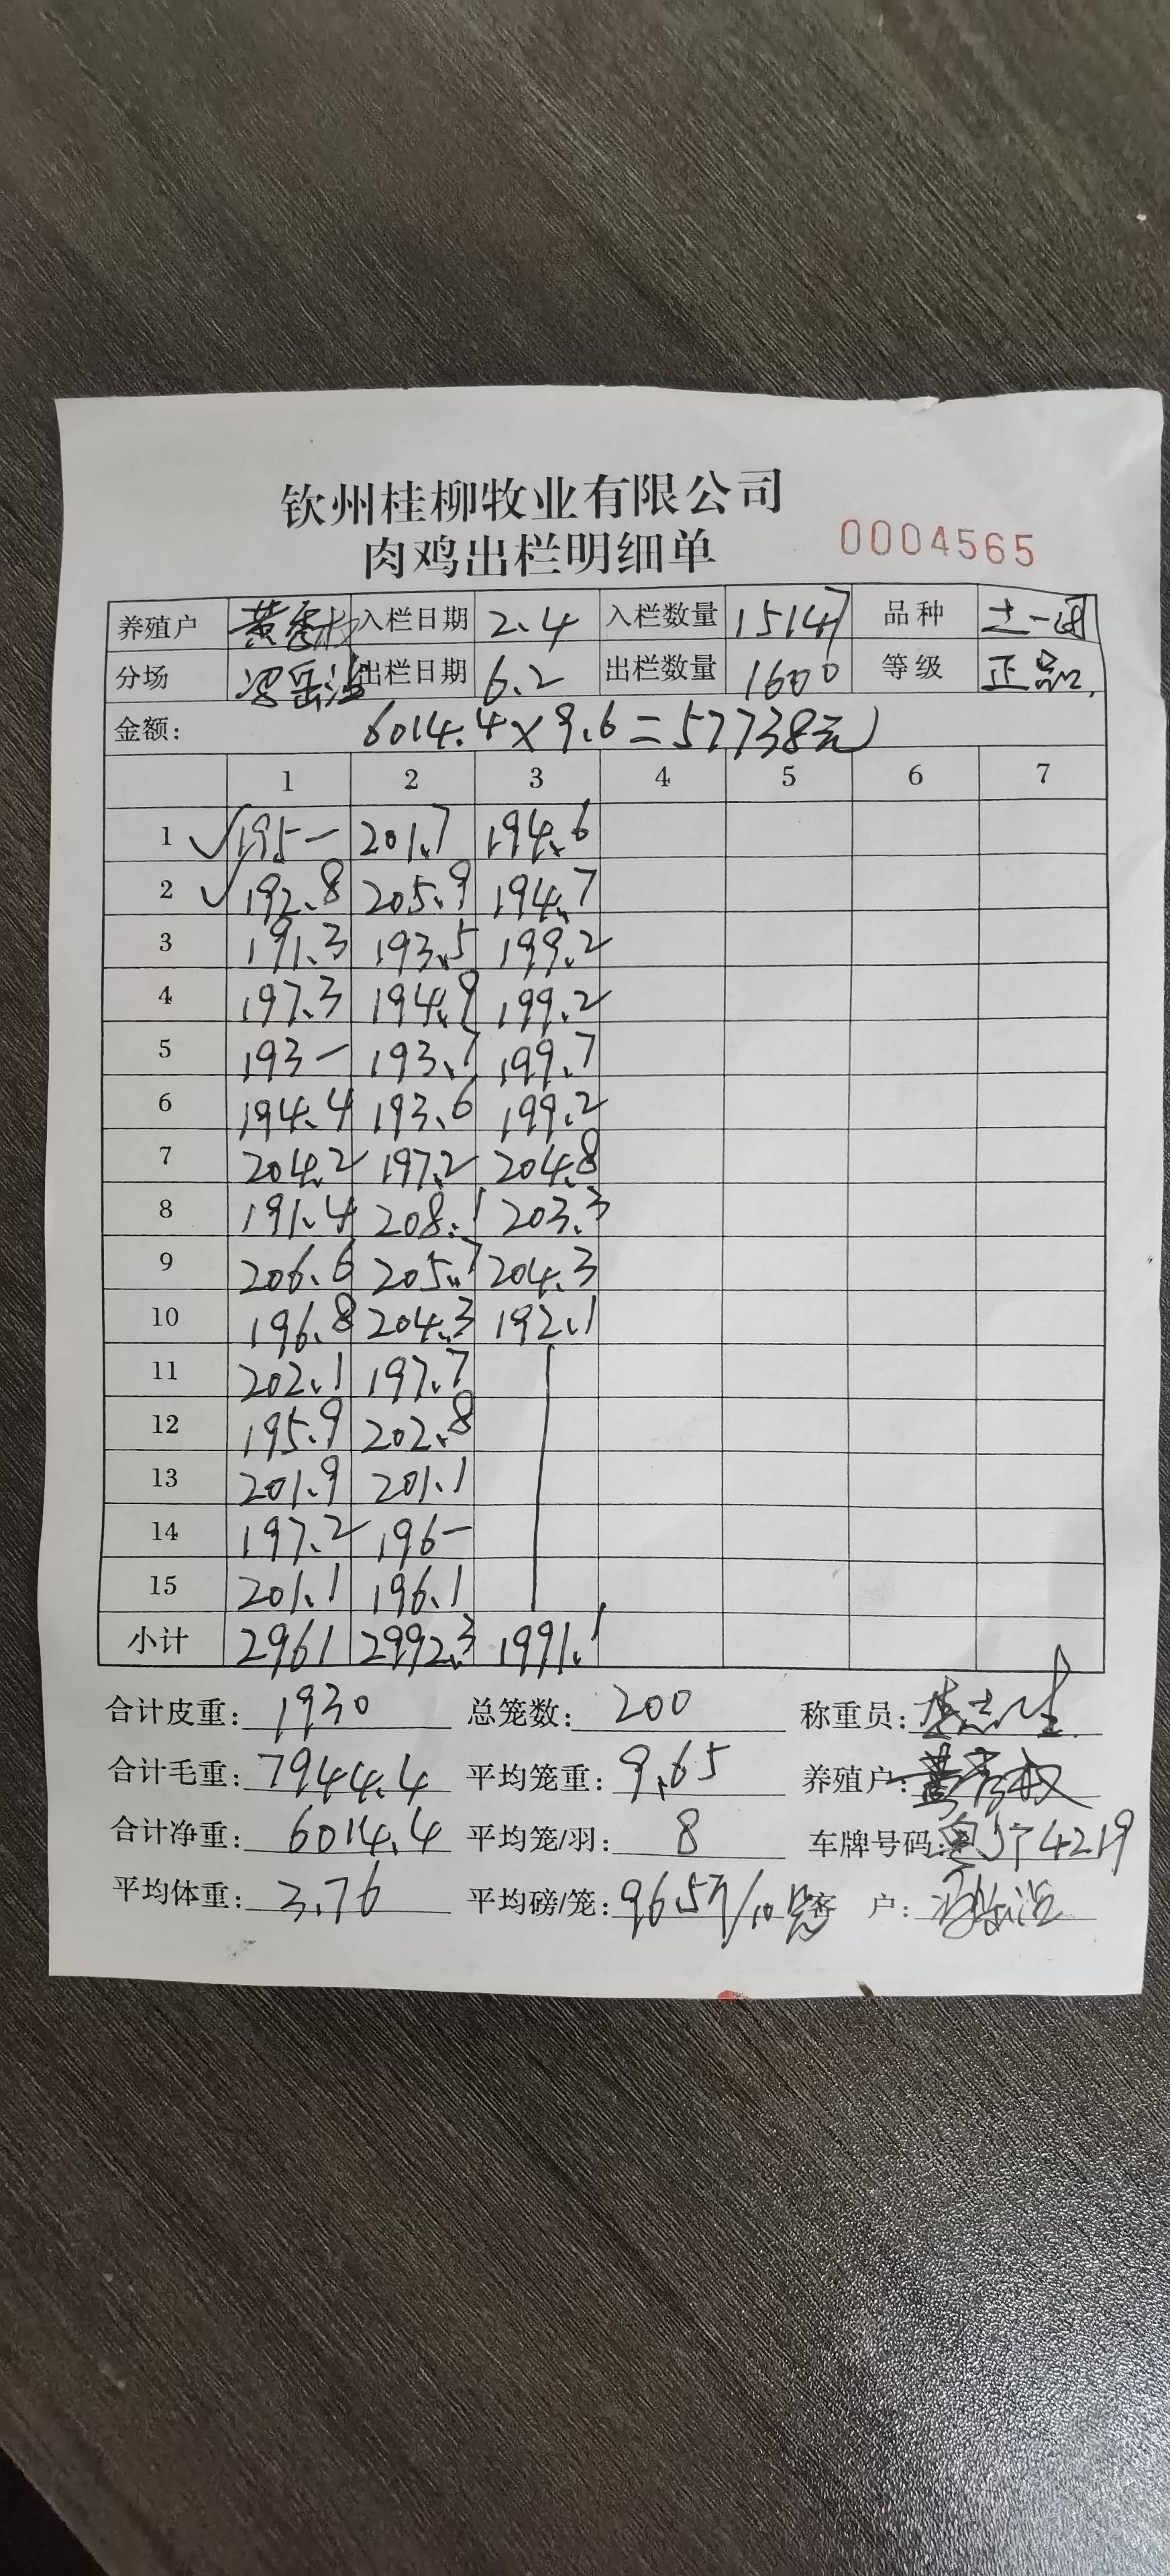 钦州桂柳牧业有限公司
肉鸡出栏明细单
0004565
养殖户 黄秀权 入栏日期 2.4 入栏数量 15147 品种 土一
分场 出栏日期 6.2 出栏数量 1600 等级 正品
金额: 6014.4×9.6=57738元
1 2 3 4 5 6 7
1 195- 201.7 194.6
2 192.8 205.9 194.7
3 191.3 193.5 199.2
4 197.3 194.9 199.2
5 193- 193.7 199.7
6 194.4 193.6 199.2
7 204.2 197.2 204.8
8 191.4 208.1 203.3
9 206.6 205.7 204.3
10 196.8 204.3 192.1
11 202.1 197.7
12 195.9 202.8
13 201.9 201.1
14 197.2 196-
15 201.1 196.1
小计 2961 2992.3 1991.1
合计皮重: 1930 总笼数: 200 称重员: 李志生
合计毛重: 7944.4 平均笼重: 9.65 养殖户: 黄秀权
合计净重: 6014.4 平均笼/羽: 8 车牌号码: 4219
平均体重: 3.76 平均磅/笼: 96.5斤/10 客 户: